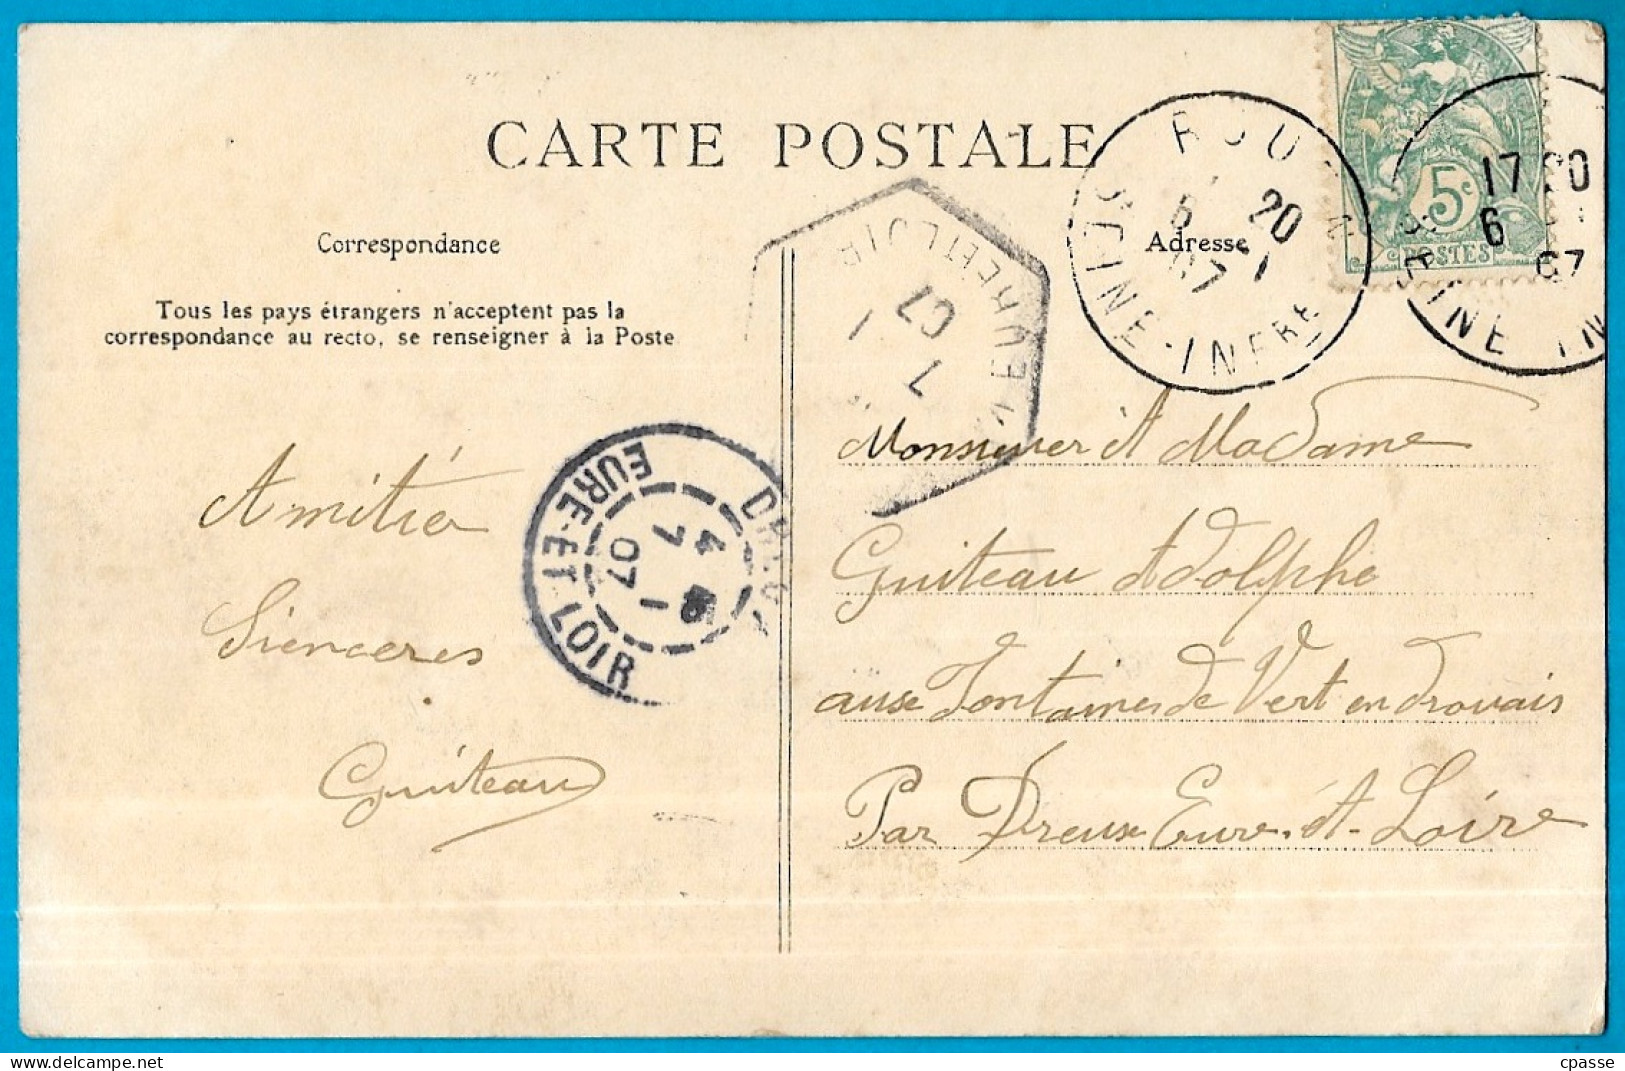 CARTE POSTALE
Correspondance
Tous les pays étrangers n'acceptent pas la
correspondance au recto, se renseigner à la Poste
Adresse
5c
POSTES
20
SEINE-INFRE
17 20
6
07
EURE ET LOIR
7 1
07
EURE-ET-LOIR
7 1
07
Amitié
Sienceres
Guiteau
Monsieur et Madame
Guiteau Adolphe
aux Fontaines de Vert en drouais
Par Dreux Eure. et. Loire
cpasse